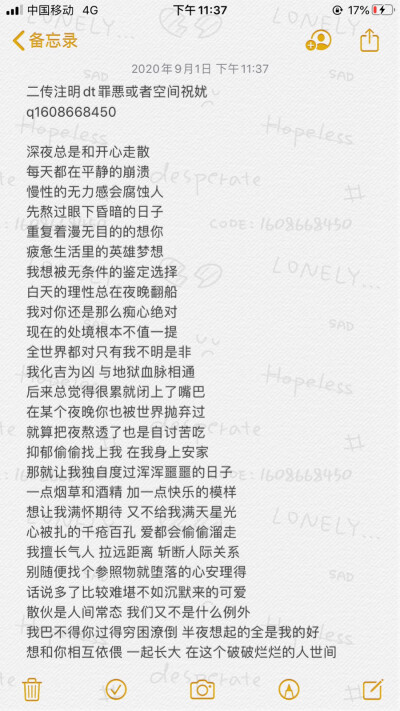 中国移动 4G 下午11:37 17%
备忘录
2020年9月1日 下午11:37
二传注明dt罪悪或者空间祝妩
q1608668450
深夜总是和开心走散
每天都在平静的崩溃
慢性的无力感会腐蚀人
先熬过眼下昏暗的日子
重复着漫无目的的想你
疲惫生活里的英雄梦想
我想被无条件的鉴定选择
白天的理性总在夜晚翻船
我对你还是那么痴心绝对
现在的处境根本不值一提
全世界都对只有我不明是非
我化吉为凶 与地狱血脉相通
后来总觉得很累就闭上了嘴巴
在某个夜晚你也被世界抛弃过
就算把夜熬透了也是自讨苦吃
抑郁偷偷找上我 在我身上安家
那就让我独自度过浑浑噩噩的日子
一点烟草和酒精 加一点快乐的模样
想让我满怀期待 又不给我满天星光
心被扎的千疮百孔 爱都会偷偷溜走
我擅长气人 拉远距离 斩断人际关系
别随便找个参照物就堕落的心安理得
话说多了比较难堪不如沉默来的可爱
散伙是人间常态 我们又不是什么例外
我巴不得你过得穷困潦倒 半夜想起的全是我的好
想和你相互依偎 一起长大 在这个破破烂烂的人世间
LONELY...
SAD
Hopeless
desperate
CODE: 1608668450
LONELY...
SAD
Hopeless
desperate
CODE: 1608668450
LONELY...
SAD
Hopeless